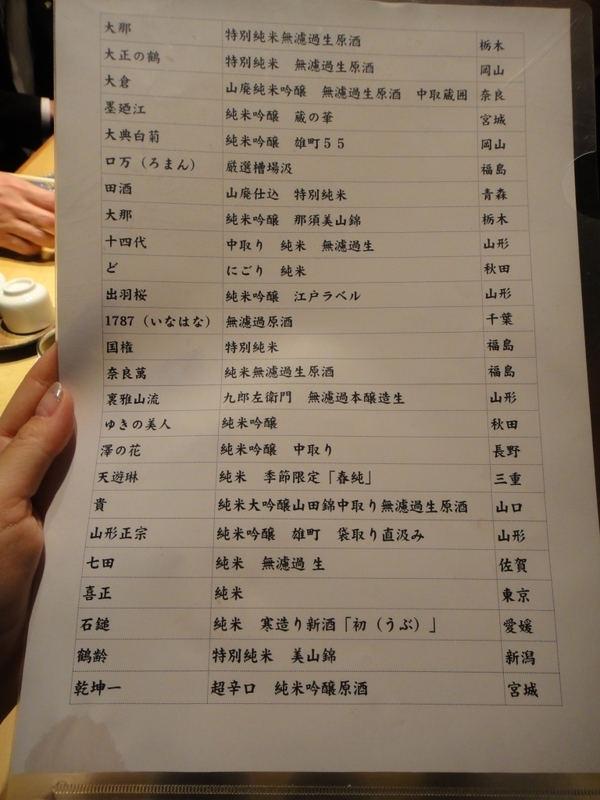 大那 特別純米無濾過生原酒 栃木
大正の鶴 特別純米 無濾過生原酒 岡山
大倉 山廃純米吟醸 無濾過生原酒 中取蔵囲 奈良
墨廼江 純米吟醸 蔵の華 宮城
大典白菊 純米吟醸 雄町55 岡山
ロ万（ろまん） 厳選槽場汲 福島
田酒 山廃仕込 特別純米 青森
大那 純米吟醸 那須美山錦 栃木
十四代 中取り 純米 無濾過生 山形
ど にごり 純米 秋田
出羽桜 純米吟醸 江戸ラベル 山形
1787（いなはな） 無濾過原酒 千葉
国権 特別純米 福島
奈良萬 純米無濾過生原酒 福島
裏雅山流 九郎左衛門 無濾過本醸造生 山形
ゆきの美人 純米吟醸 秋田
澤の花 純米吟醸 中取り 長野
天遊琳 純米 季節限定「春純」 三重
貴 純米大吟醸山田錦中取り無濾過生原酒 山口
山形正宗 純米吟醸 雄町 袋取り直汲み 山形
七田 純米 無濾過 生 佐賀
喜正 純米 東京
石鎚 純米 寒造り新酒「初（うぶ）」 愛媛
鶴齢 特別純米 美山錦 新潟
乾坤一 超辛口 純米吟醸原酒 宮城